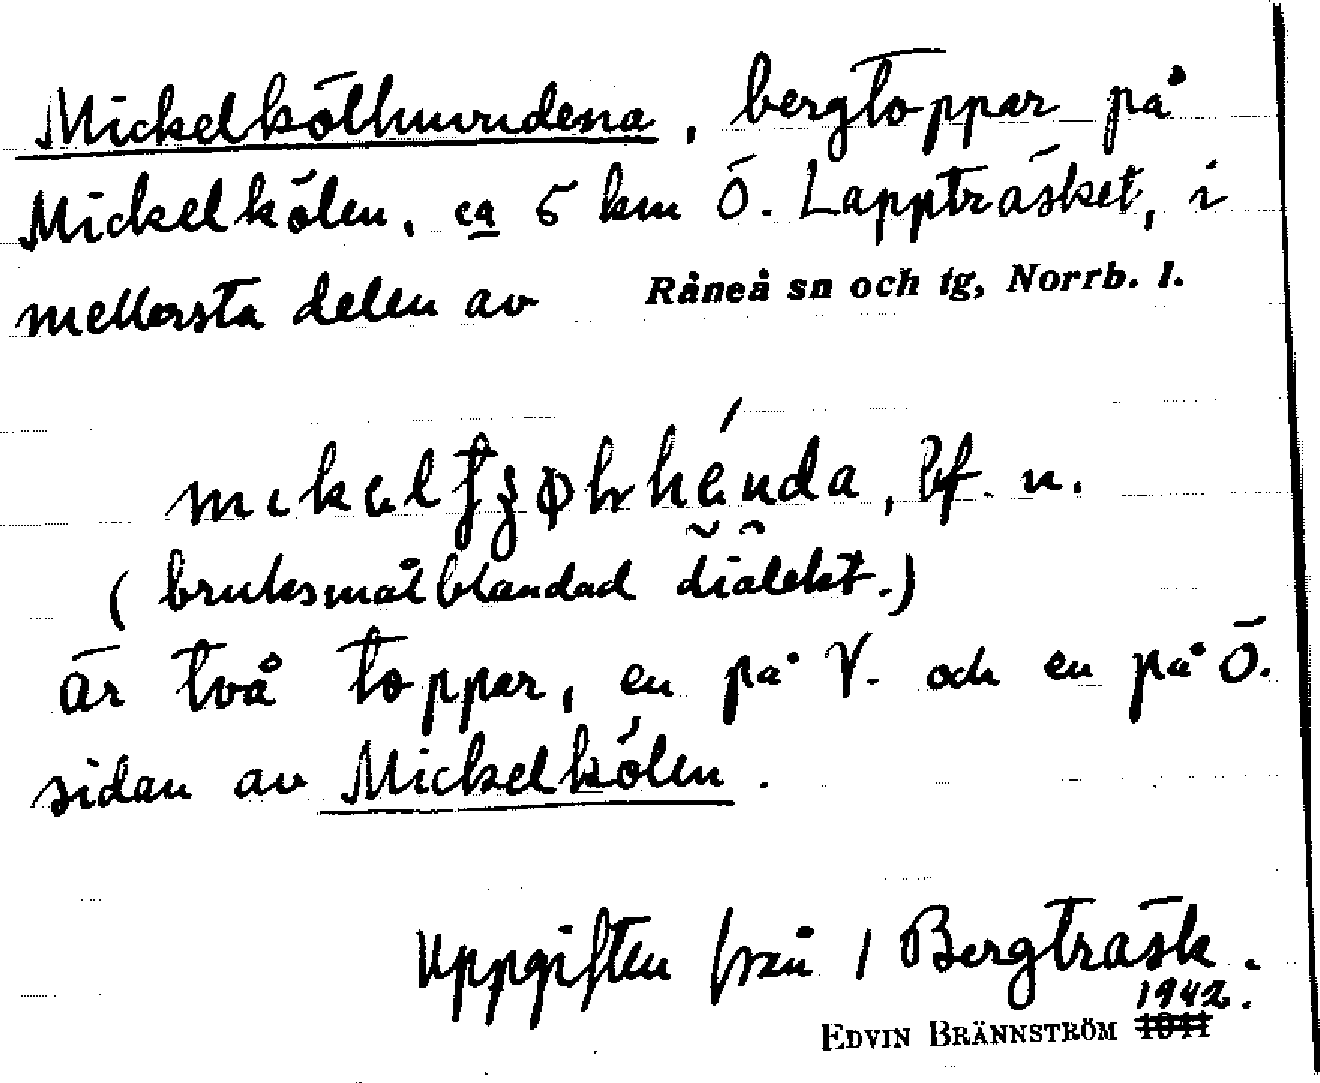 Mickelkölhuvudena, bergtoppar på
Mickelkölen, ca 5 km Ö. Lappträsket, i
mellersta delen av Råneå sn och tg, Norrb. l.
bf. n.
(bruksmålblandad dialekt.)
Är två toppar, en på V. och en på Ö.
sidan av Mickelkölen.
Uppgiften från 1 Bergträsk.
1942.
EDVIN BRÄNNSTRÖM 1941